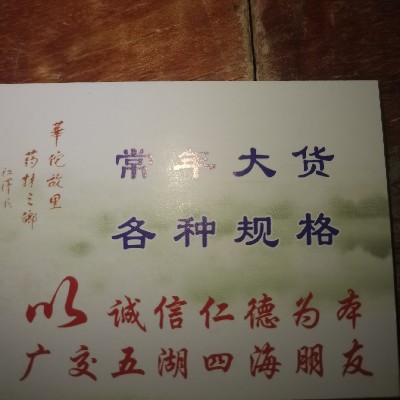 華佗故里
药材之鄉
常年大货
各种规格
以诚信仁德为本
广交五湖四海朋友